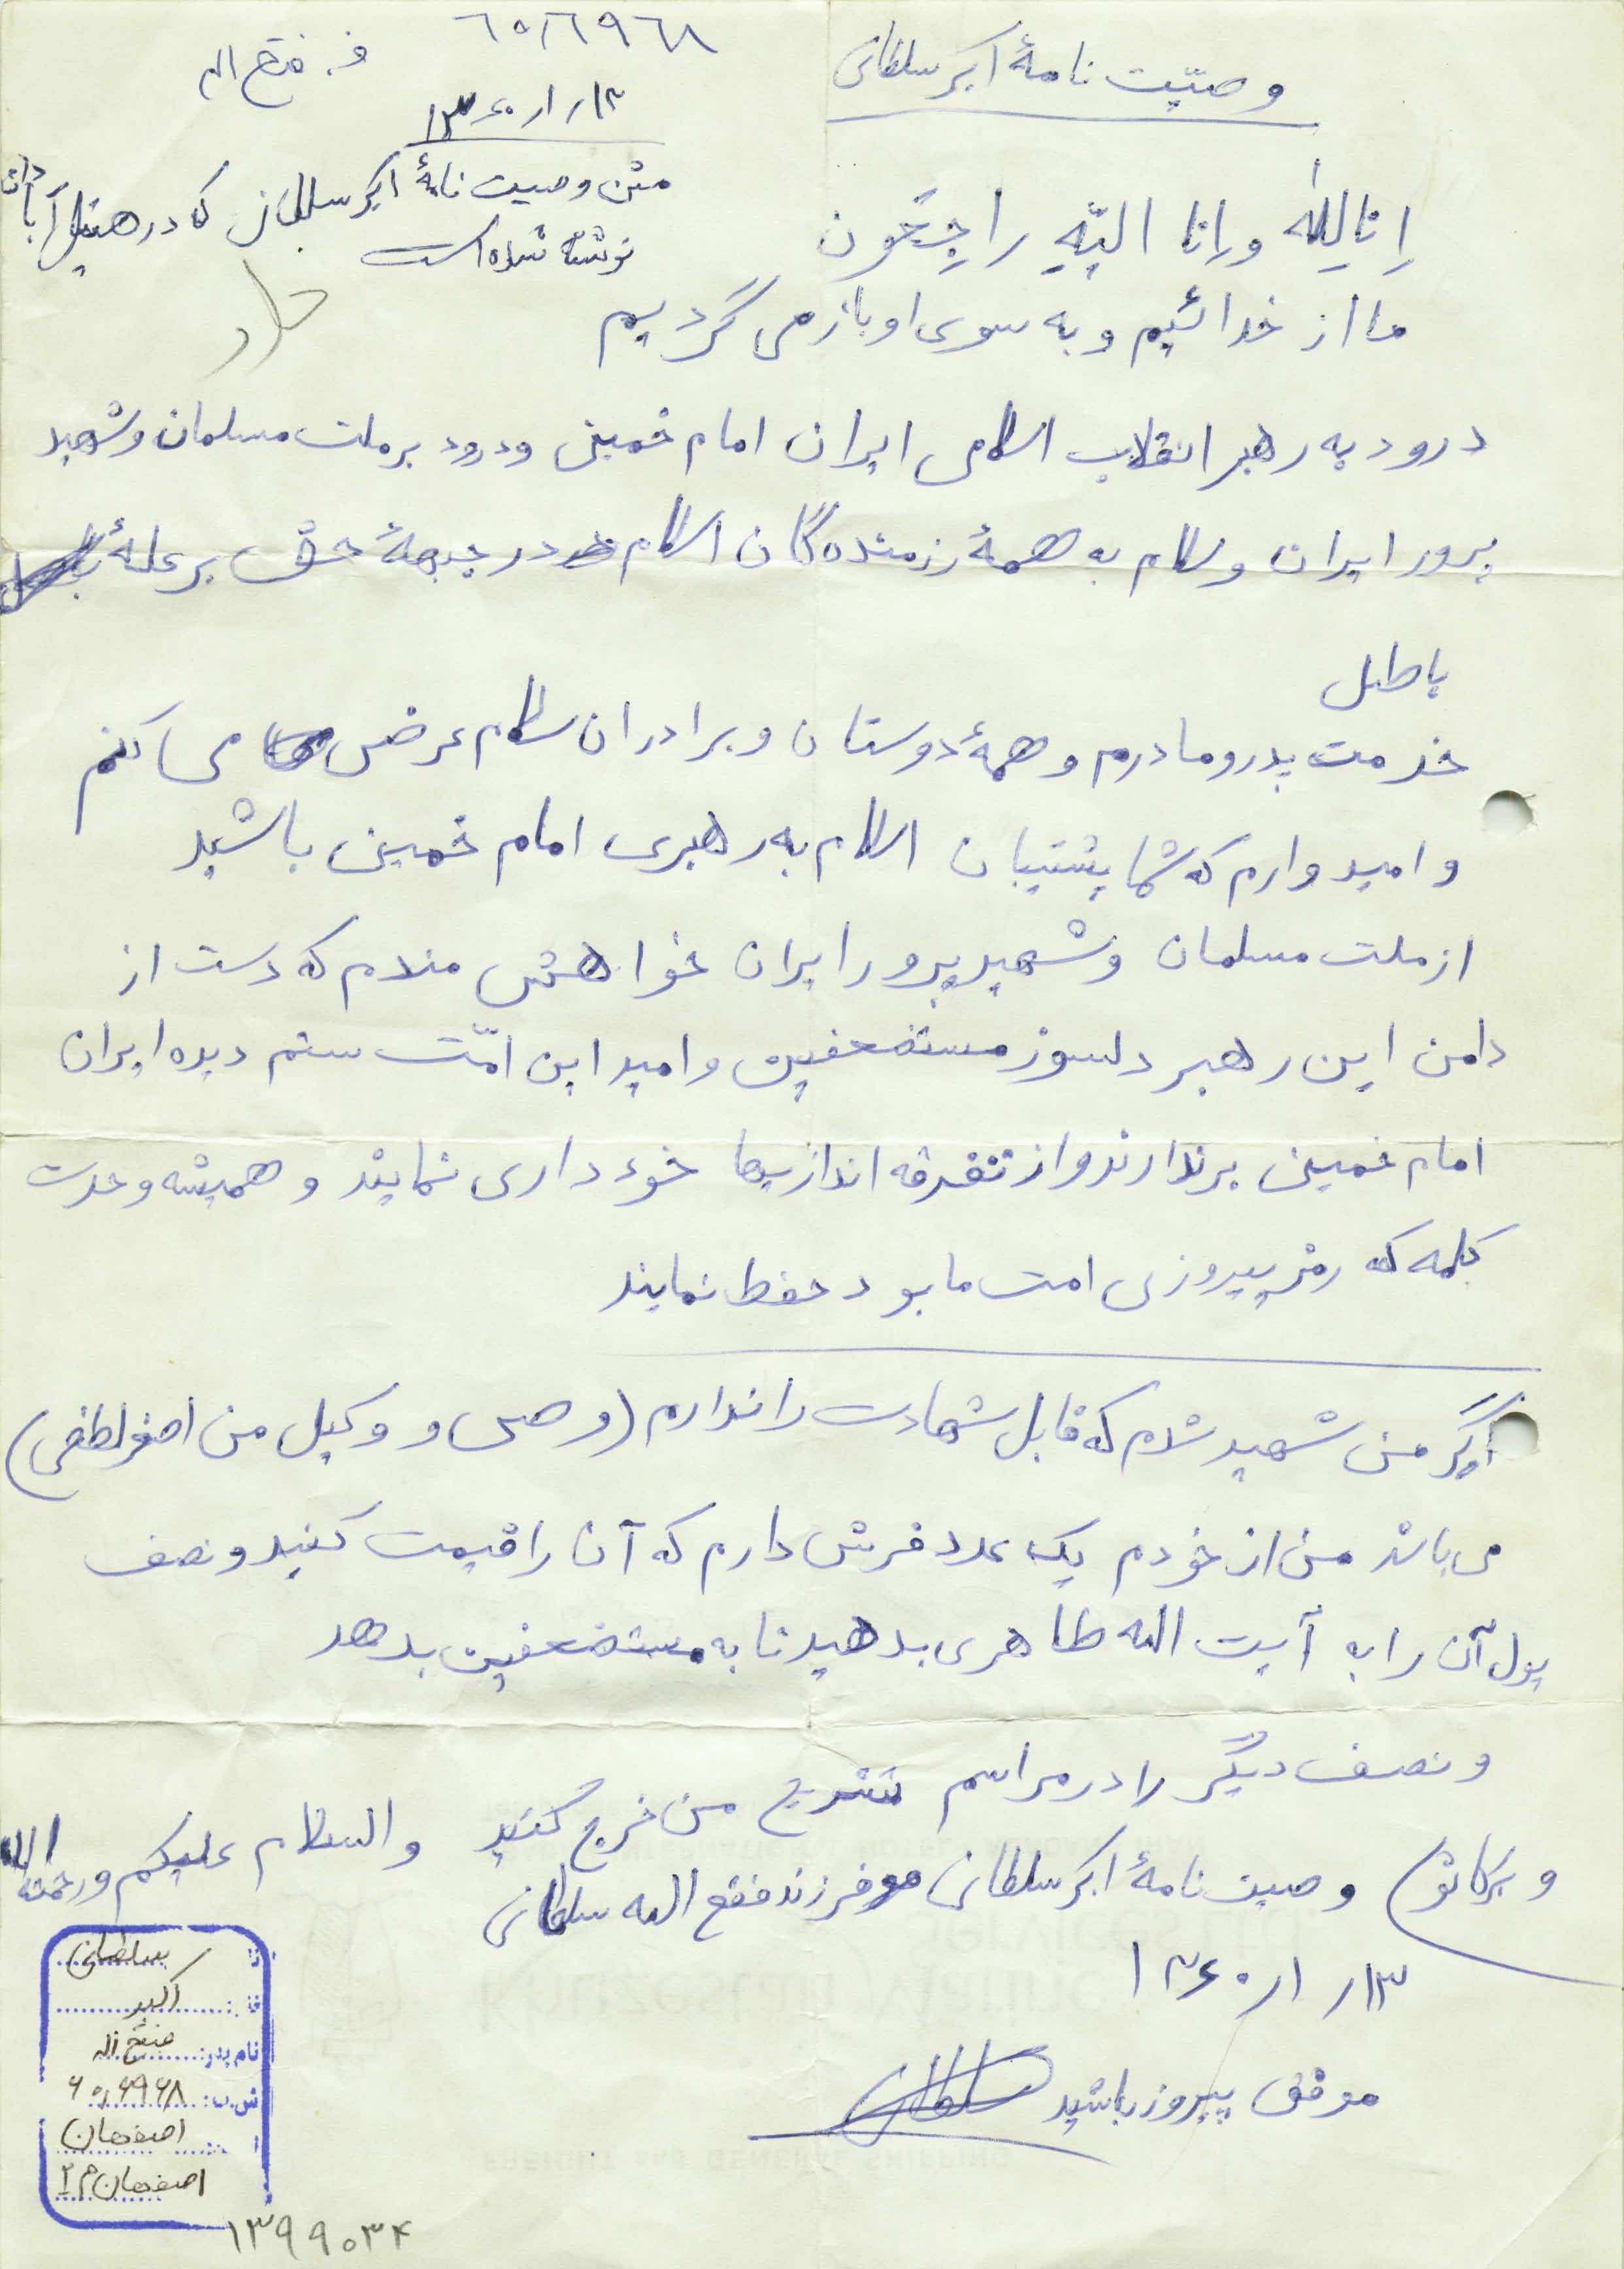 وصیّت نامهٔ اکبر سلطانی
۶۵/۶۹۶۸
ف. فتح اله
۱۳/۱/۱۳۶۰
متن وصیت نامهٔ اکبر سلطانی که در هتل آبادان
نوشته شده است
اِنا لِلله و اِنا الیّهِ راجِعُون
ما از خدائیم و به سوی او باز می گردیم
درود به رهبر انقلاب اسلامی ایران امام خمینی و درود بر ملت مسلمان و شهید
پرور ایران و سلام به همهٔ رزمنده گان اسلام در جبههٔ حق بر علهٔ
باطل
خدمت پدر و مادرم و همهٔ دوستان و برادران سلام عرض می کنم
و امیدوارم که شما پشتیبان اسلام به رهبری امام خمینی باشید
از ملت مسلمان و شهید پرور ایران خواهش مندم که دست از
دامن این رهبر دلسوز مستضعفین و امید این امّت ستم دیده ایران
امام خمینی برندارند و از تفرقه اندازیها خودداری نمایند و همیشه وحدت
کلمه که رمز پیروزی امت ما بود حفظ نمایند
اگر من شهید شدم که قابل شهادت را ندارم (وصی و وکیل من اصغر لطفی)
می باشد من از خودم یک عدد فرش دارم که آن را قیمت کنید و نصف
پول آن را به آیت الله طاهری بدهید تا به مستضعفین بدهد
و نصف دیگر را در مراسم تشریح من خرج کنید والسلام علیکم و رحمته الله
و برکاتو) وصیت نامهٔ اکبر سلطانی فرزند فتح اله سلطانی
۱۳/۱/۱۳۶۰
موفق پیروز باشید سلطانی
سلطانی
اکبر
نام پدر: فتح اله
ش.ب: ۶۵/۶۹۶۸
اصفهان
اصفهان م ۲
۱۳۹۹۰۳۴